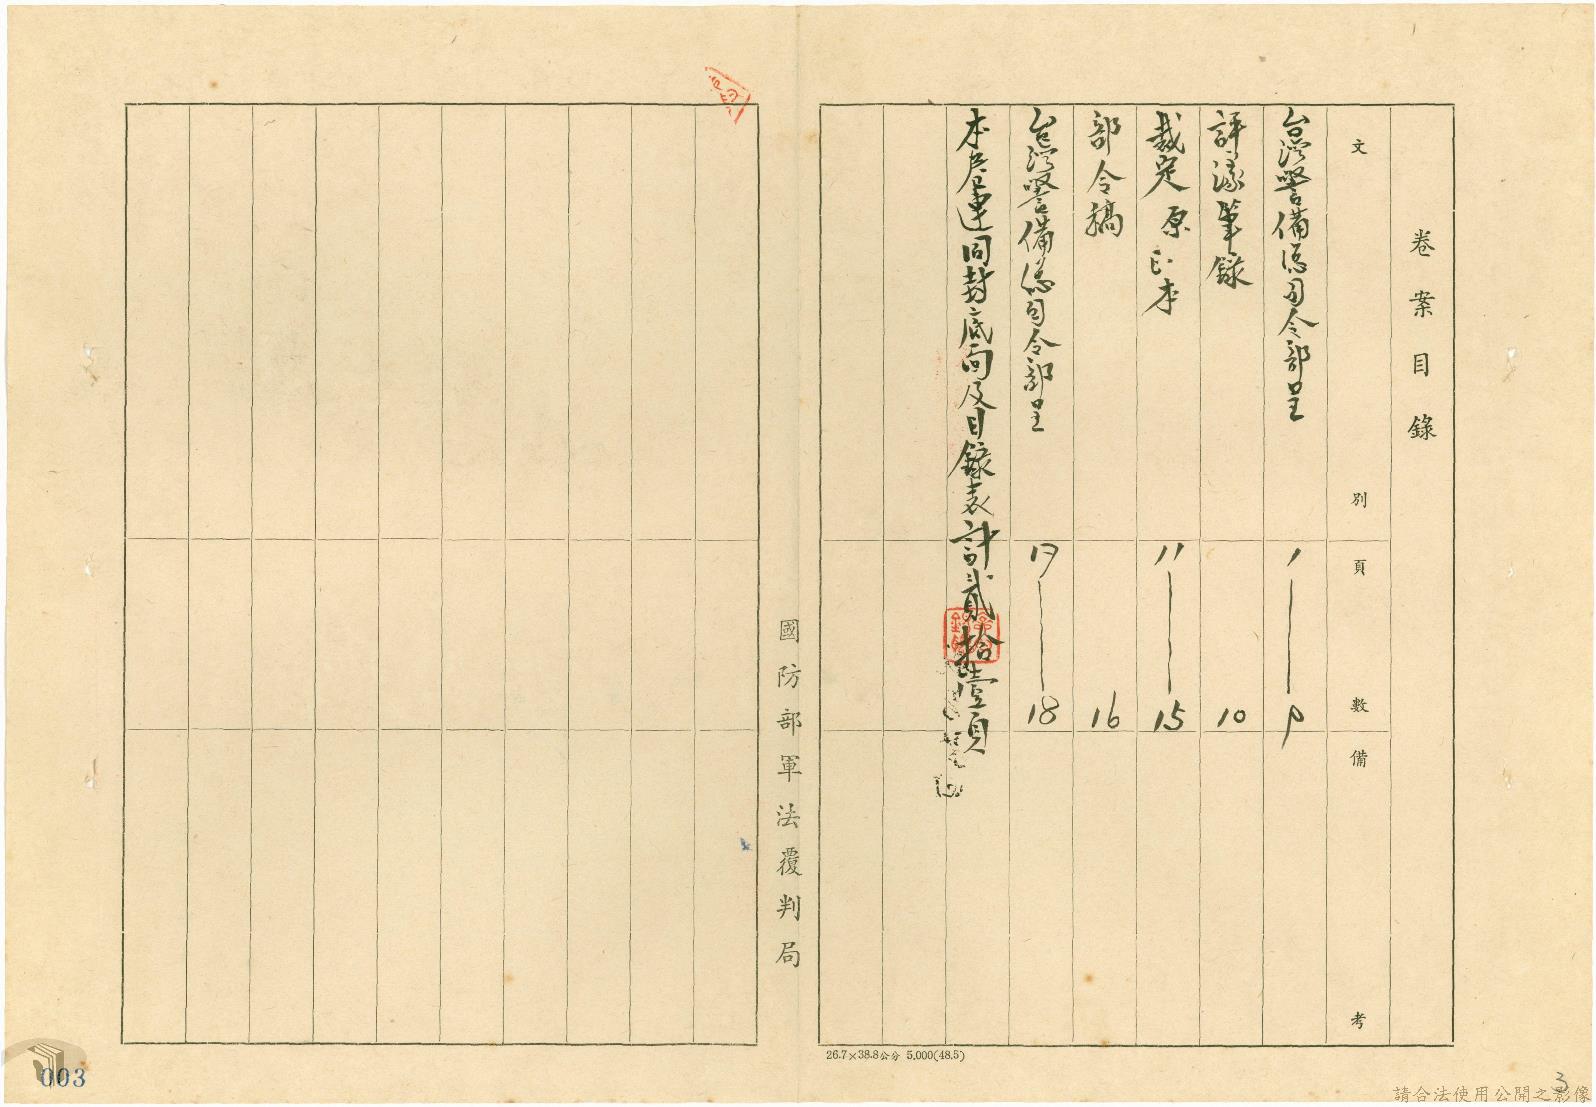 卷案目錄
文別
頁數
備考
台灣警備總司令部呈
1—9
評議筆錄
10
裁定原正本
11—15
部令稿
16
台灣警備總司令部呈
17—18
本卷連同封底面及目錄表計貳拾壹頁
國防部軍法覆判局
26.7×38.8公分 5,000(48.5)
003
3
請合法使用公開之影像